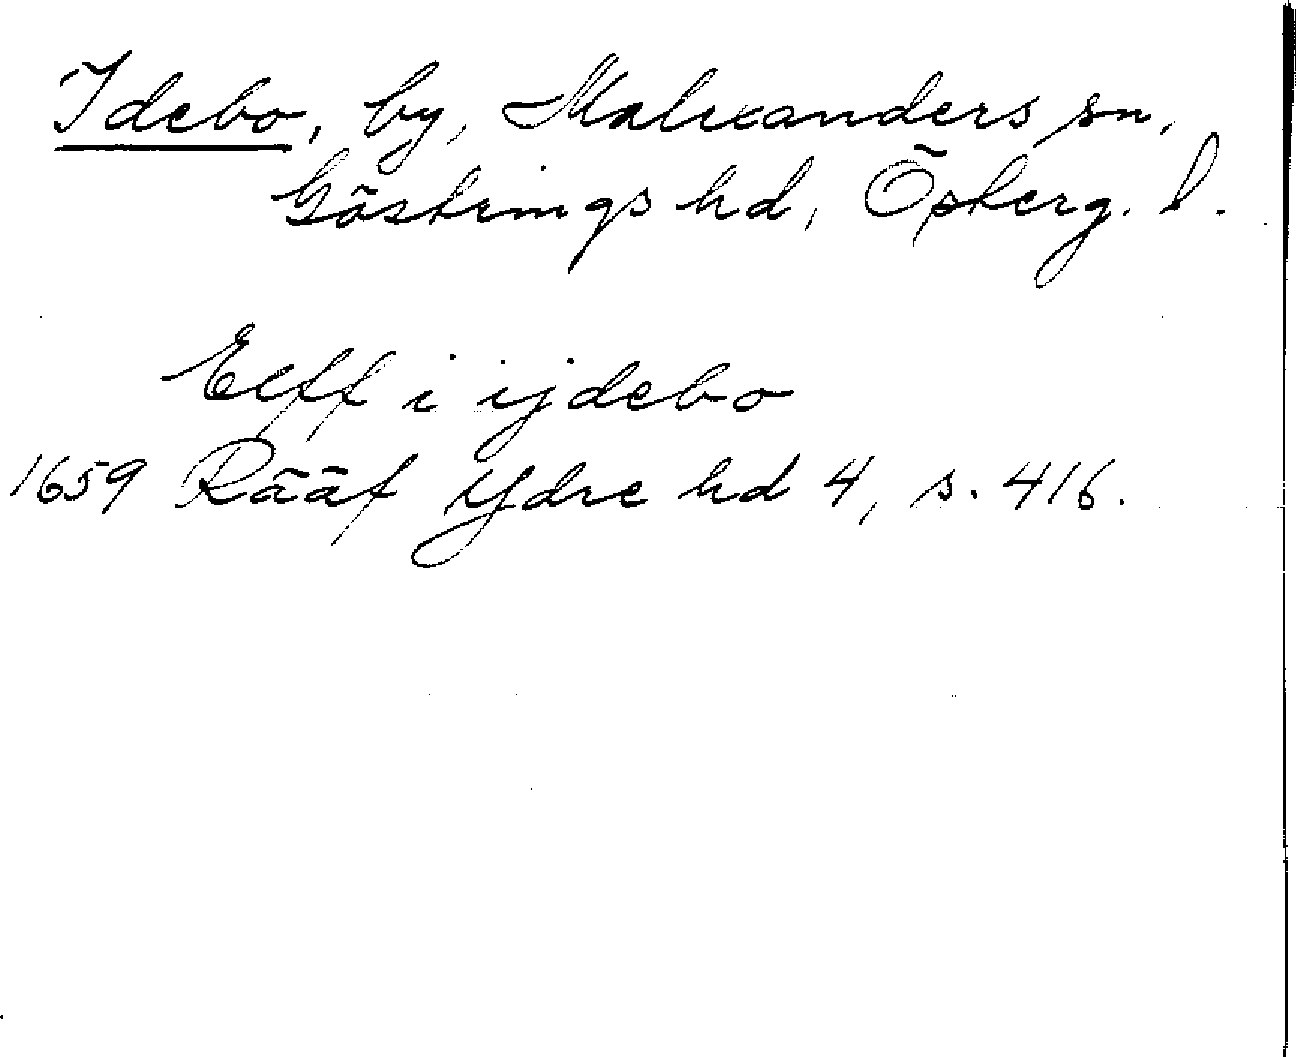 Idebo, by, Malexanders sn,
Göstrings hd, Östberg. l.
Elff i ijdebo
1659 Rääf Ydre hd 4, s. 416.